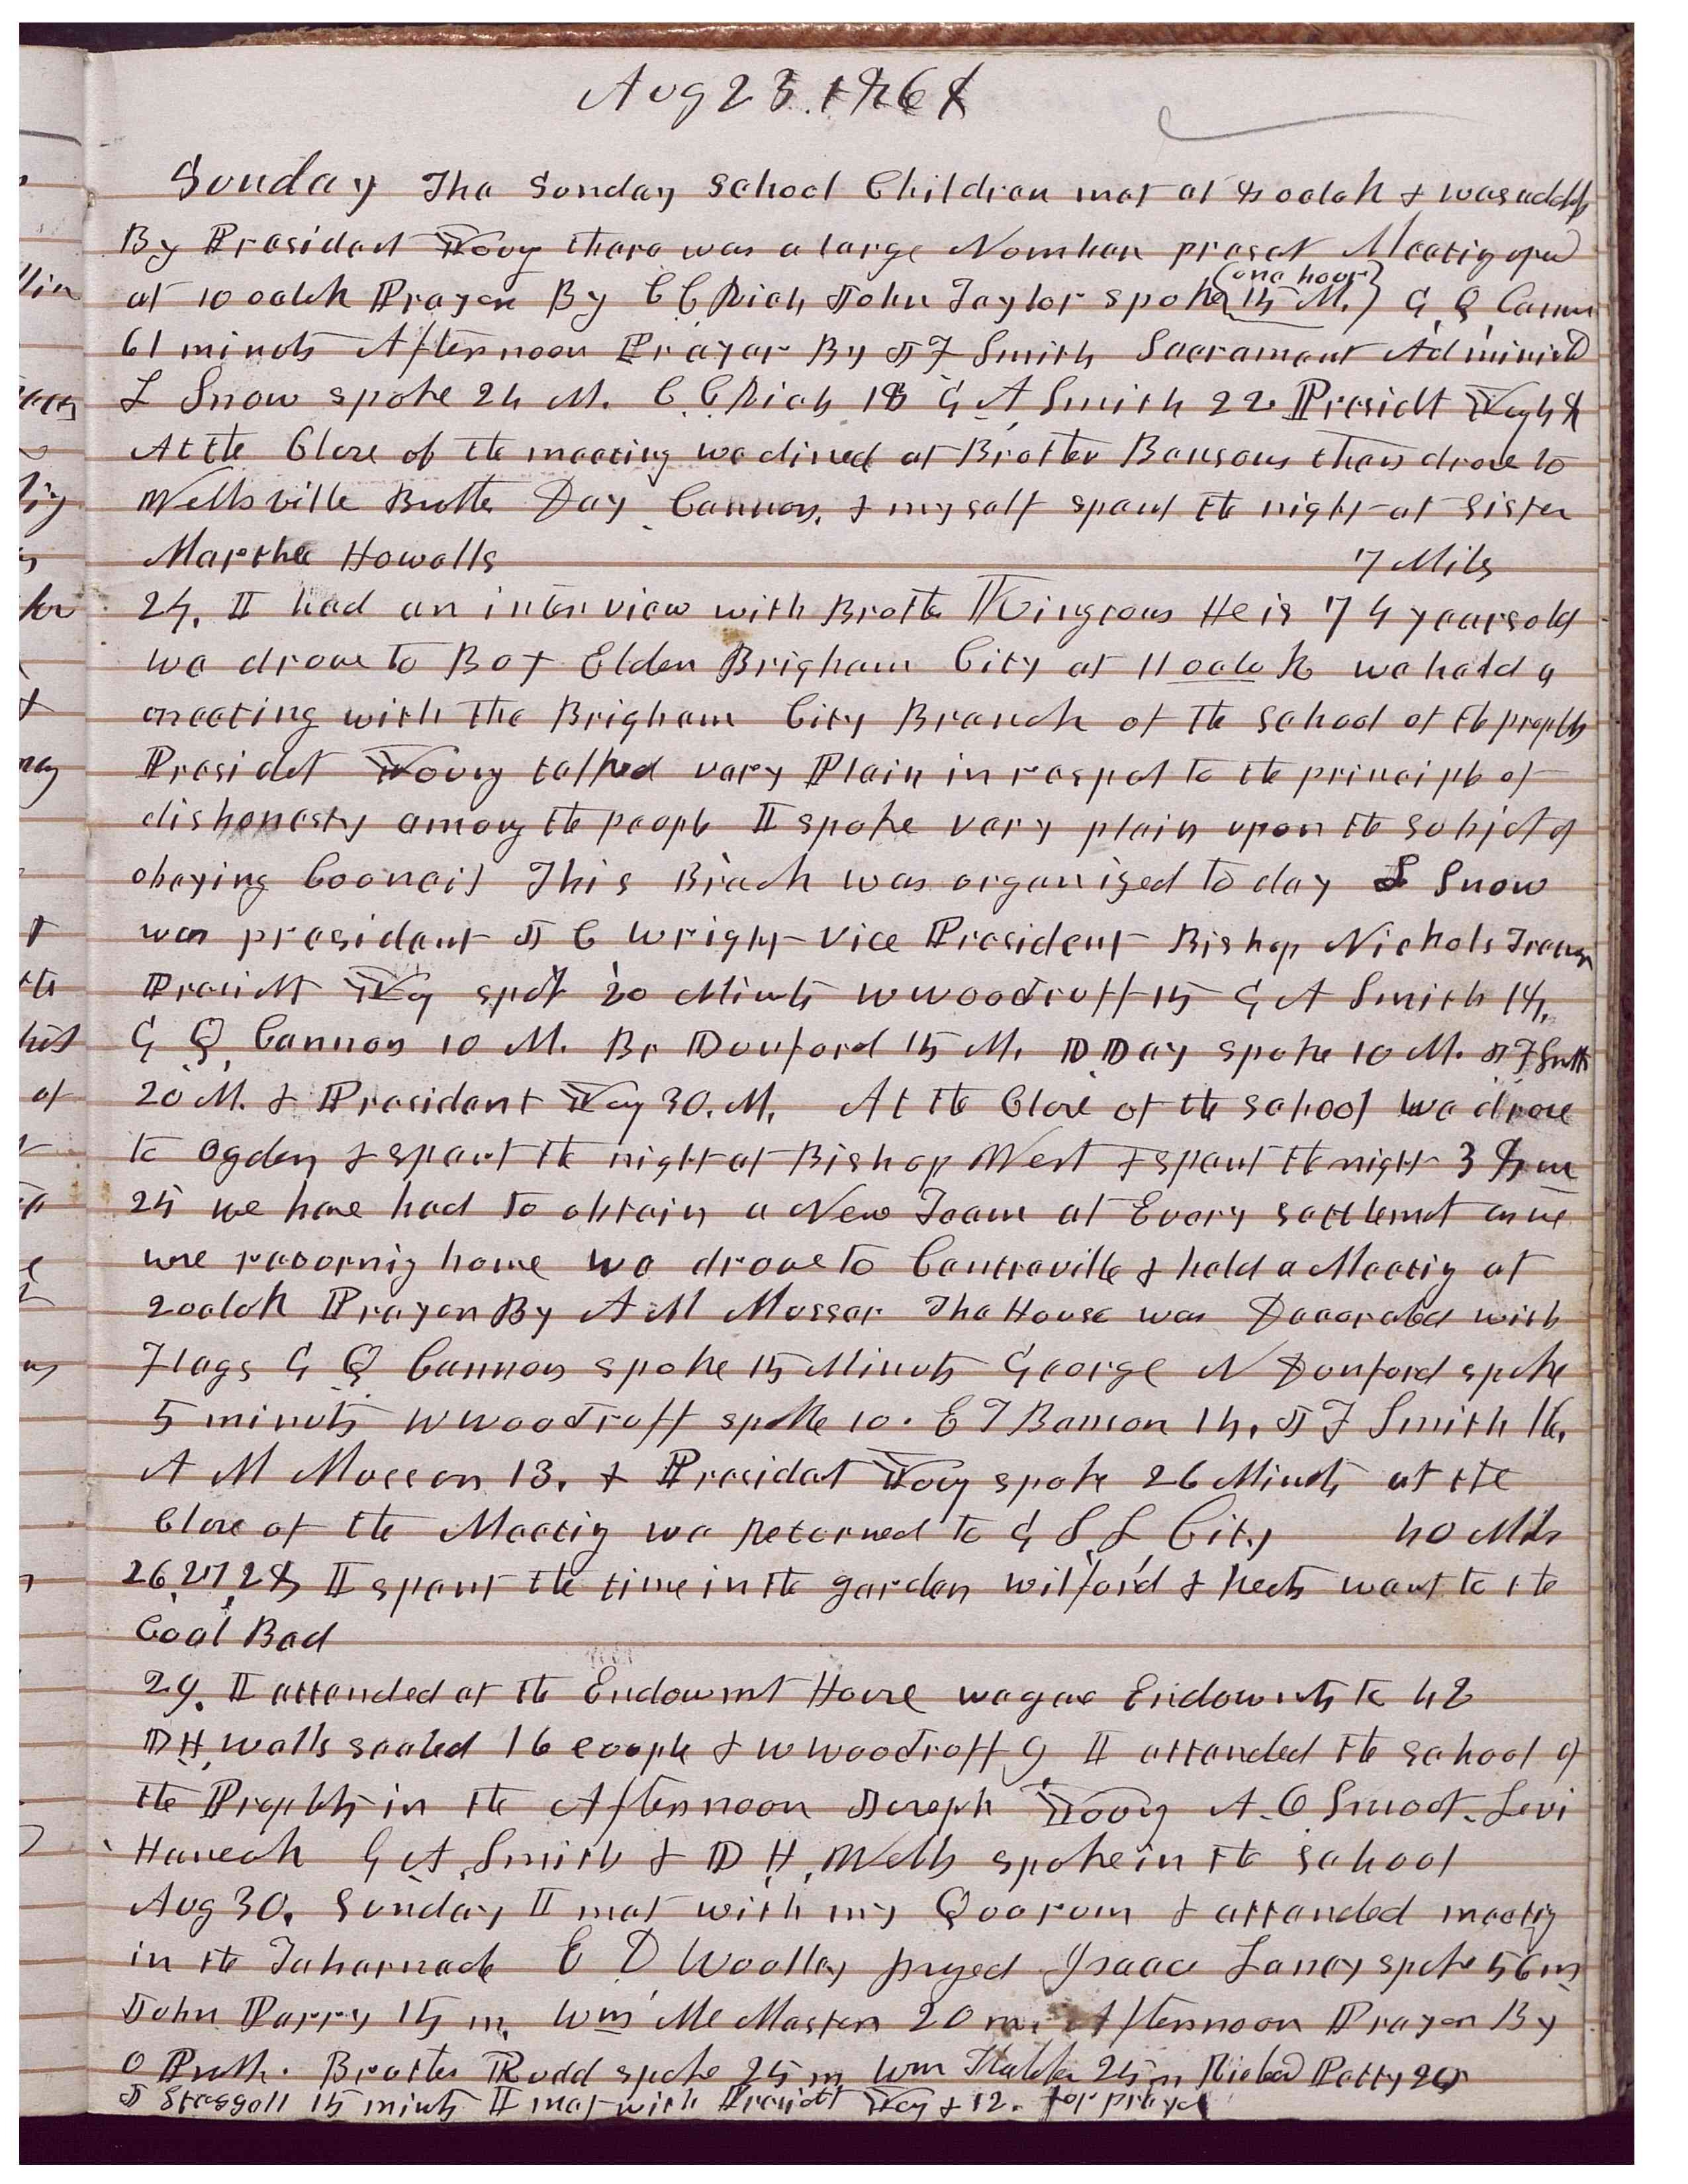 Aug 23. 1868
Sunday The Sunday School Children met at 8 oclok & was adds
By Presidet Young there was a large Number preset Meetig opned
at 10 oclok Prayer By C C Rich John Taylor spoke (one hour) (15 M.) G Q Cannon
61 minuts Afternoon Prayer By J F Smith Sacrament Adminisd
L Snow spoke 24 M. C C Rich 18 G A Smith 22 Presidt Yug 8
At the Close of the meeting we dined at Brother Bensons then drove to
Wellsville Brother Day Cannon, & myself spent the night at Sister
Martha Howells 7 Mils
24. I had an interview with Brother He is 74 years old
we drove to Box Elder Brigham City at 11 oclok we held a
meeting with the Brigham City Branch of the School of the prophts
Presidet Young talked very Plain in respet to the principle of
dishonesty among the people I spoke very plain upon the subjet of
obeying Council This Brach was organized to day L Snow
was president J C Wright Vice President Bishop Nichols Treasur
Presidt Yug spok 20 Minuts W Woodruff 15 G A Smith 14,
G Q Cannon 10 M. Br Dunford 15 M, D Day spoke 10 M. J F Smith
20 M. & President Yug 30. M, At the Close of the School we drove
to Ogden & spent the night at Bishop West & spent the night 34 m
25 we have had to obtain a New Team at Every settlemet as we
were returnig home we drove to Centreville & held a Meetig at
2 oclok Prayer By A M Musser The House was Decorated with
Flags G Q Cannon spoke 15 Minuts George N Dunford spoke
5 minuts W Woodruff spoke 10. E T Benson 14, J F Smith 16,
A M Musser 13. & Presidet Young spoke 26 Minuts at the
Close of the Meetig we Returned to G S L City 40 Mils
26, 27, 28 I spent the time in the garden Wilford & went to the
Coal Bed
29. I attended at the Endowmt House we gave Endowmts to 42
D H, Wells sealed 16 couple & W Woodruff 9 I attended the School of
the Prophets in the Afternoon Joseph Young A. O Smoot. Levi
Hancock G A, Smith & D H, Wells spoke in the School
Aug 30, Sunday I met with my Quorum & attended meetig
in the Tabernacle E D Woolley prayed Isaac Laney spoke 56 m
John Parry 15 m, Wm McMaster 20 m. Afternoon Prayer By
O Pratt. Brother Rudd spoke 25 m Wm 25 m Petty 20
J Staggall 15 minuts I met with Presidt Yug & 12. for prayer